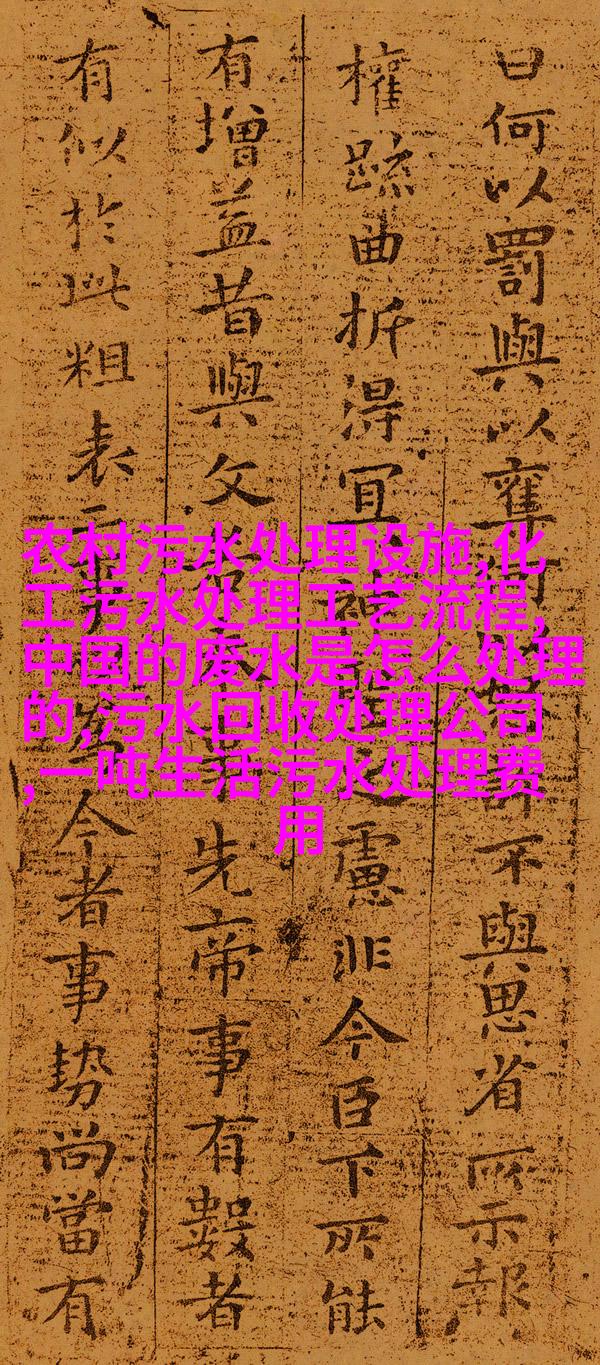 曰何以罰與以奪不與思省所示報
權疏曲折得宜神之慮非今臣下所能
有增益昔與文先帝事有數者
有似於此粗表二今者事勢尚當有
农村污水处理设施,化
工污水处理工艺流程,
中国的废水是怎么处理
的,污水回收处理公司
,一吨生活污水处理费
用